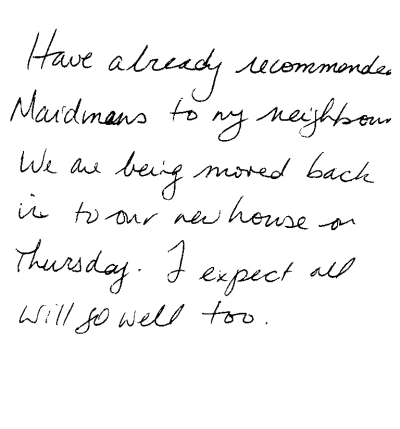 Have already recommended
Maidmans to my neighbour
We are being moved back
in to our new house on
Thursday. I expect all
will go well too.